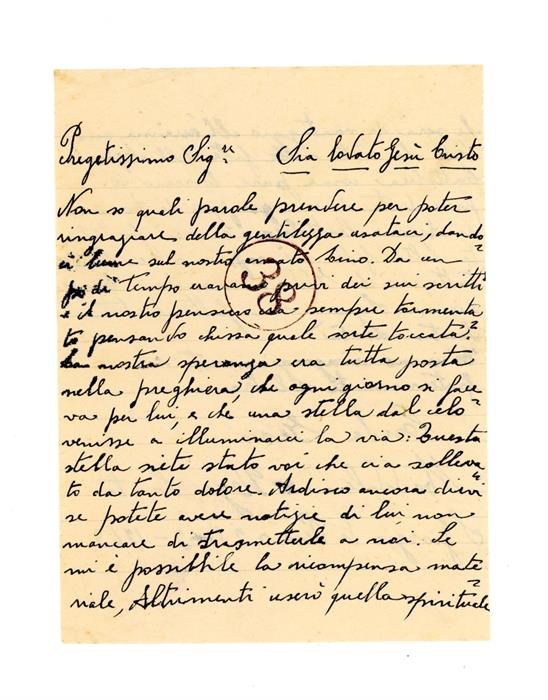 Pregetissimo Sig.re Sia lodato Gesù Cristo
Non so quali parole prendere per poter
ringraziare della gentilezza usataci, dando=
ci lume sul nostro amato Lino. Da un
po' di tempo eravamo privi dei sui scritti
e il nostro pensiero era sempre tormenta
to pensando chissa quale sorte toccata=
La nostra speranza era tutta posta
nella preghiera, che ogni giorno si face
va per lui, e che una stella dal celo=
venisse a illuminarci la via: Questa
stella siete stato voi che ci a solleva
to da tanto dolore. Ardisco ancora dirvi
se potete avere notizie di lui, non
mancare di trasmetterle a noi. Se
mi è possibbile la ricompensa mate=
riale, Altrimenti userò quella spirituale
38